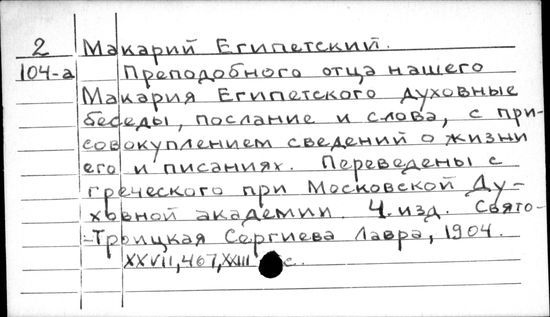 2 Макарий Египетский.
104-а Преподобного отца нашего
Макария Египетского духовные
беседы, послание и слова, с при-
совокуплением сведений о жизни
его и писаниях. Переведены с
греческого при Московской Ду-
ховной академии. 4. изд. Свято-
-Троицкая Сергиева Лавра, 1904.
XXVII, 467, XXIII с.